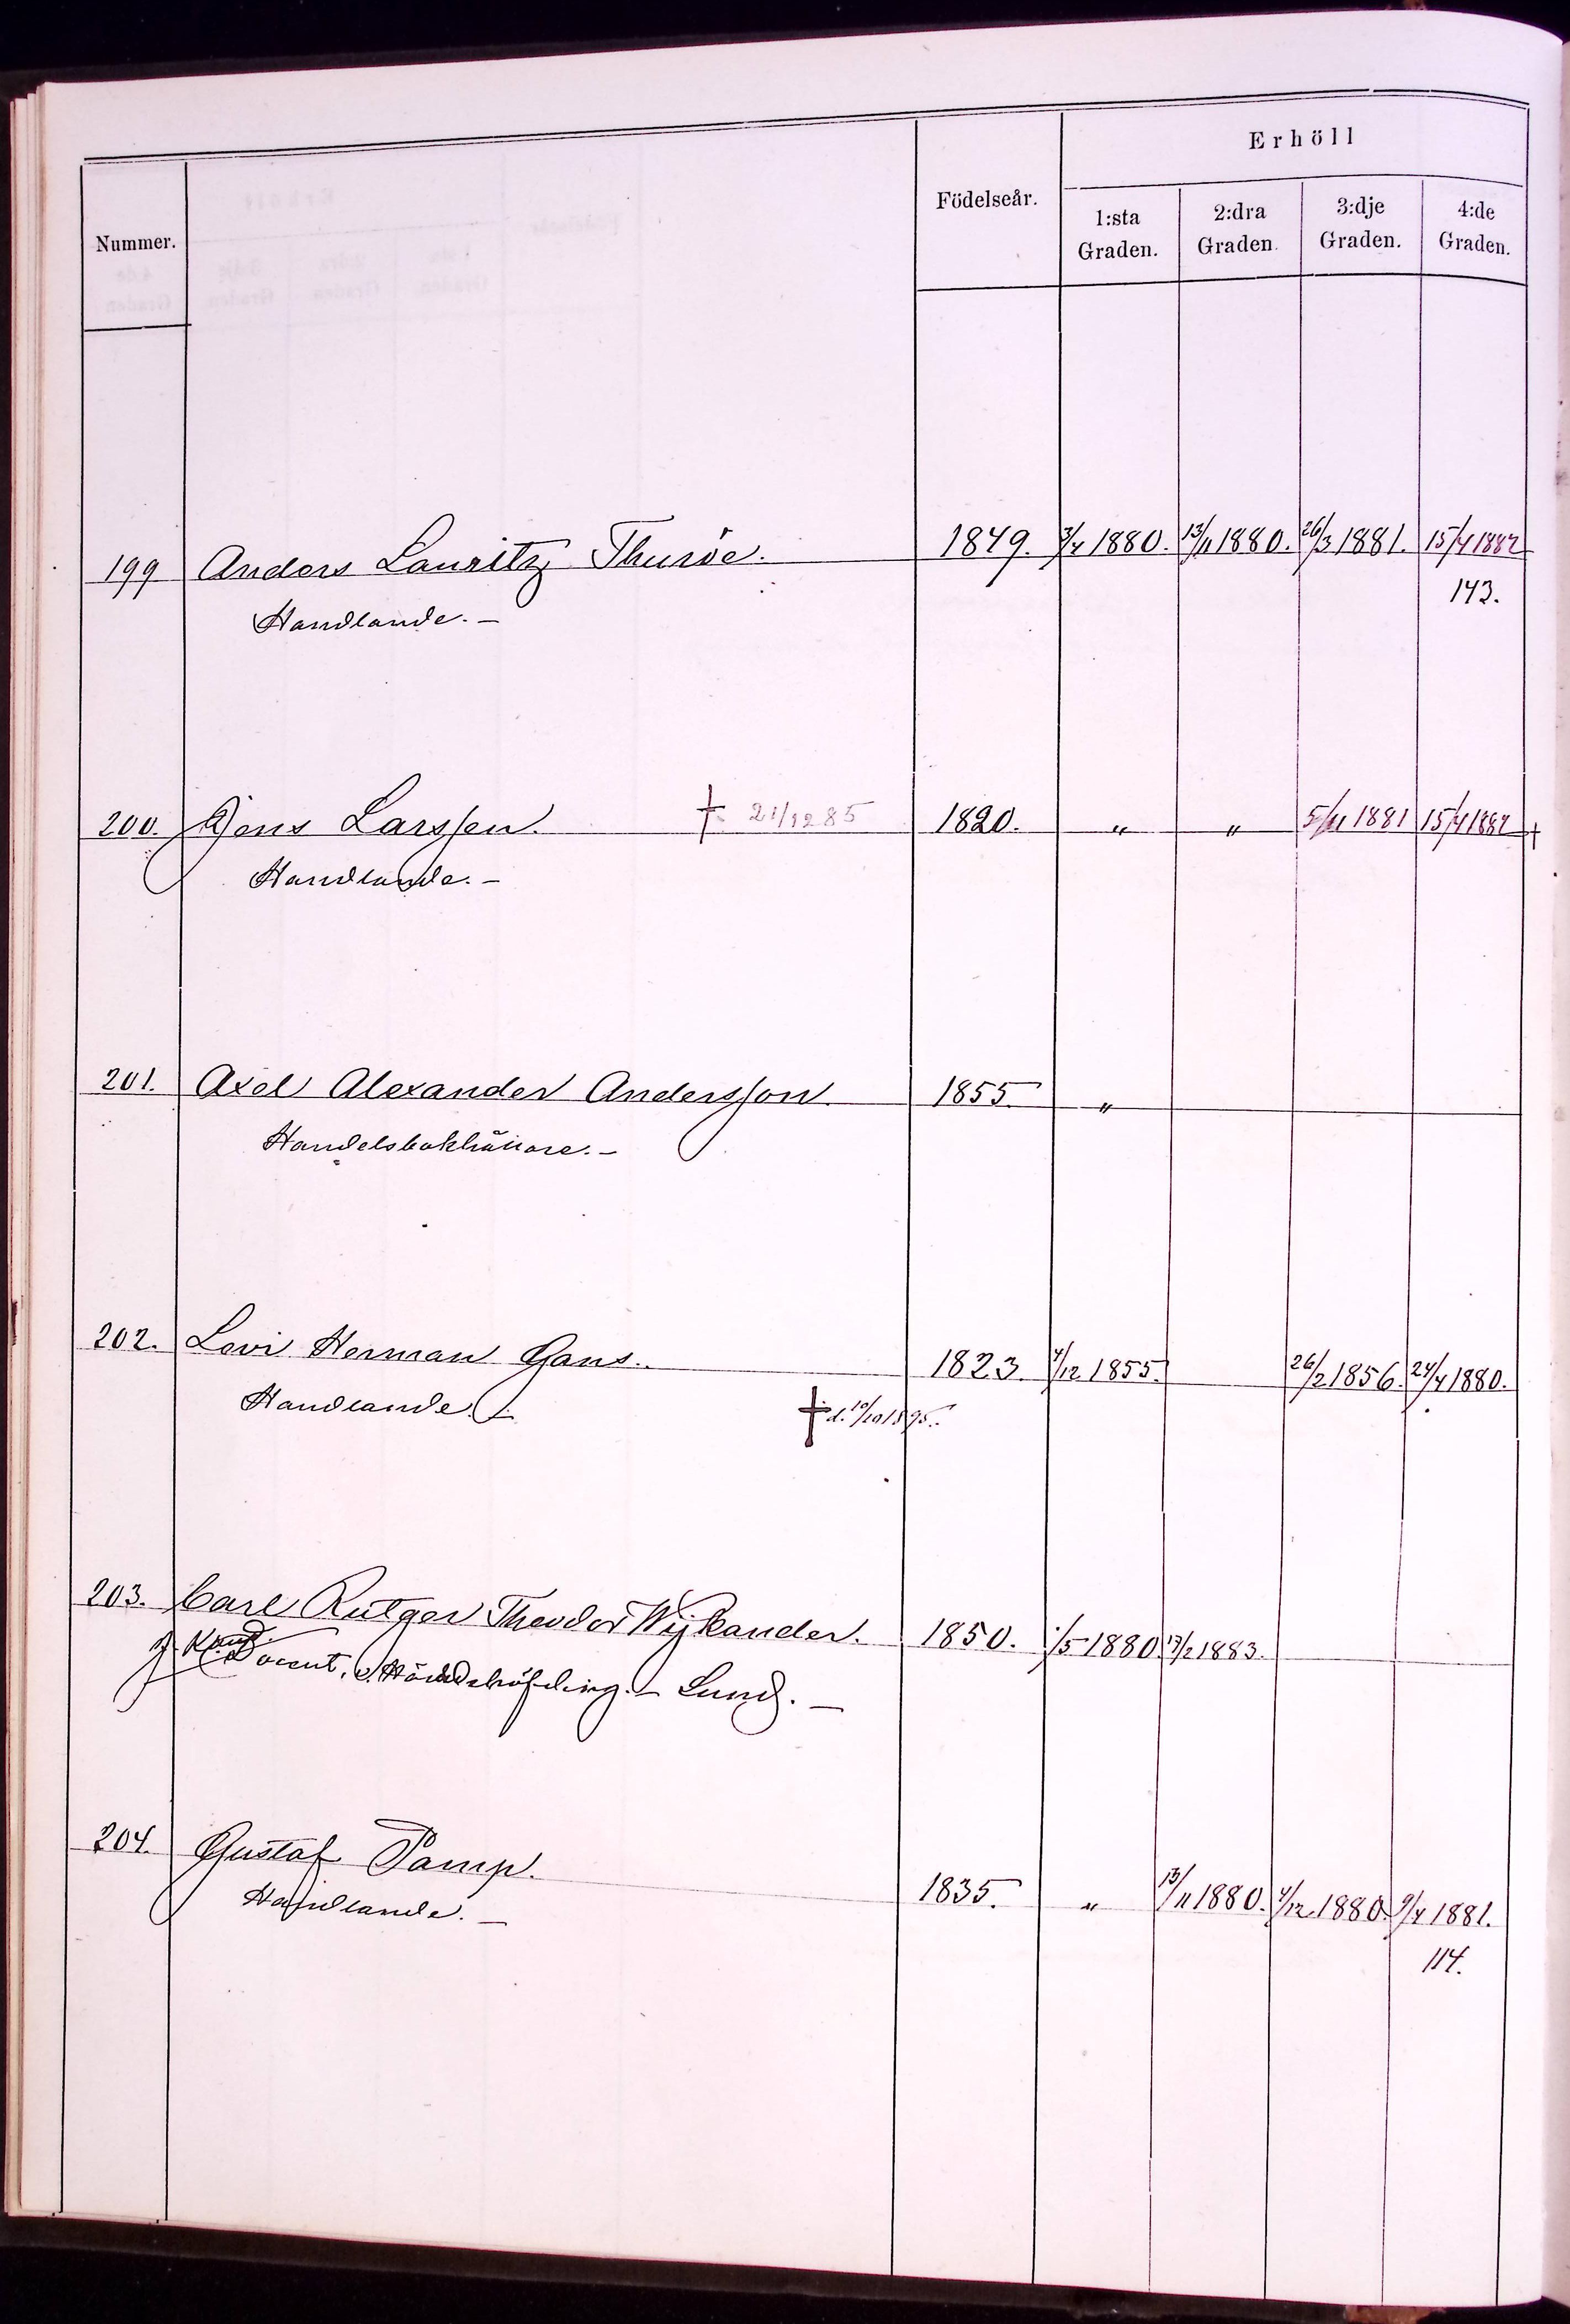 Nummer.
Födelseår.
Erhöll
1:sta Graden.
2:dra Graden.
3:dje Graden.
4:de Graden.
199 Anders Lauritz Thuröe. 1849. 3/4 1880. 13/11 1880. 26/3 1881. 15/4 1882
Handlande. – 143.
200. Jöns Larsson. † 21/12 85 1820. " " 5/11 1881 15/4 1882 †
Handlande. –
201. Axel Alexander Andersson. 1855. "
Handelsbokhållare. –
202. Levi Herman Gans. 1823. 4/12 1855. 26/2 1856. 24/4 1880.
Handlande. – † d. 10/10 1895.
203. Carl Rutger Theodor Wijkander. 1850. 1/5 1880. 17/2 1883.
J. Kand.
Docent, v. Häradshöfding. – Lund. –
204. Gustaf Pamp. 1835. " 13/11 1880. 4/12 1880. 9/4 1881.
Handlande. – 114.